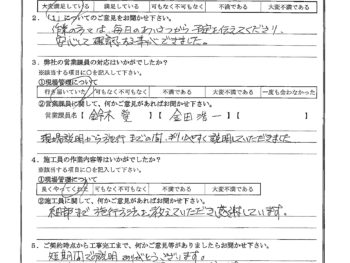 大変満足している 満足している 可もなく不可もなく 不満である 大変不満である
2.「1」についてのご意見をお聞かせ下さい。
皆の方々は、毎日のあいさつから予定を伝えてくださり、
安心して 事ができました。
3. 弊社の営業課員の対応はいかがでしたか?
※該当する項目に○を記入して下さい。
①現場管理について
行き届いていた 可もなく不可もなく 不満である 大変不満である 一度も会わなかった
②営業課員に関して、何かご意見があればお聞かせ下さい
営業課員名【鈴木 】【金田 浩一】【 】
現場説明から施行までの間、わかりやすく説明していただきました
4. 施工員の作業内容等はいかがでしたか?
※該当する項目に○を記入して下さい。
①現場管理について
良くやってくれた 可もなく不可もなく 不満である 大変不満である
②施工員に関して、何かご意見があればお聞かせ下さい
細部まで施行方法を教えていただき感謝しています。
5. ご契約時点から工事完工まで、何かご意見等がありましたらお聞かせ下さい。
短期間での説明 ありがとうございます。